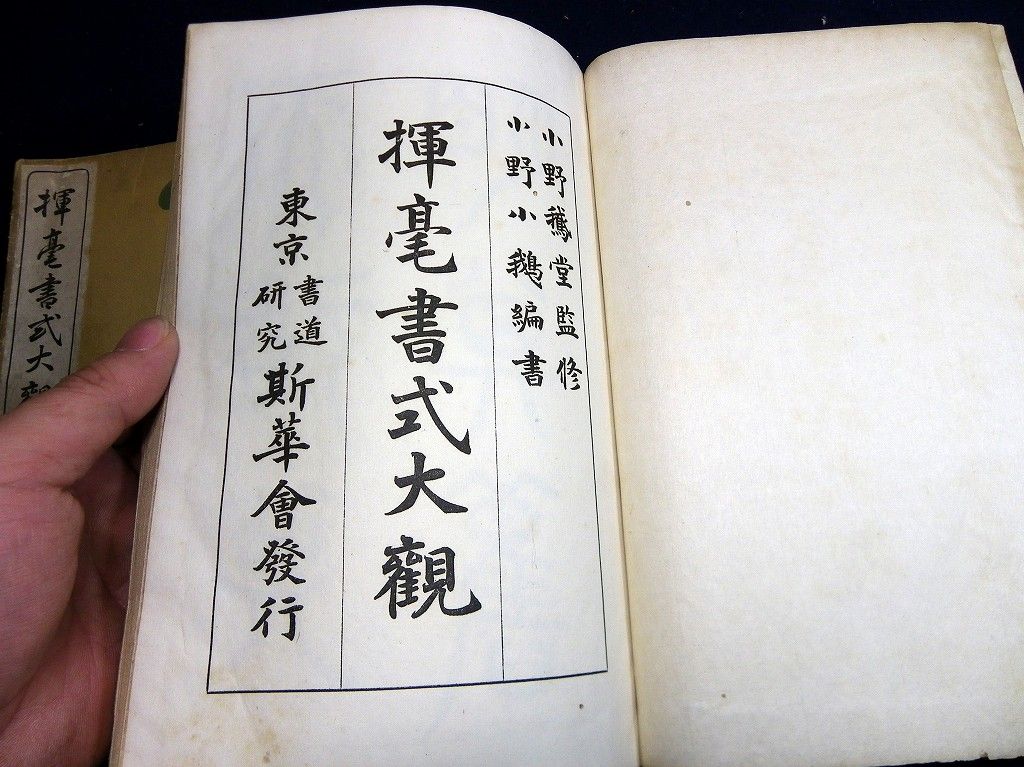 小野鵞堂監修
小野小鵝編書
揮毫書式大觀
東京書道研究斯華會發行
揮毫書式大觀